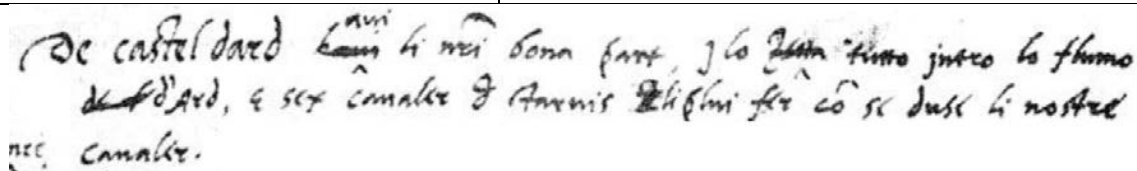 De casteldard avri li nr̃i bona part, j lo tutto intro lo flumo
d'Ard, e sex cãualer d Taruis li plui fer cõ se duse li nostre
caualer.